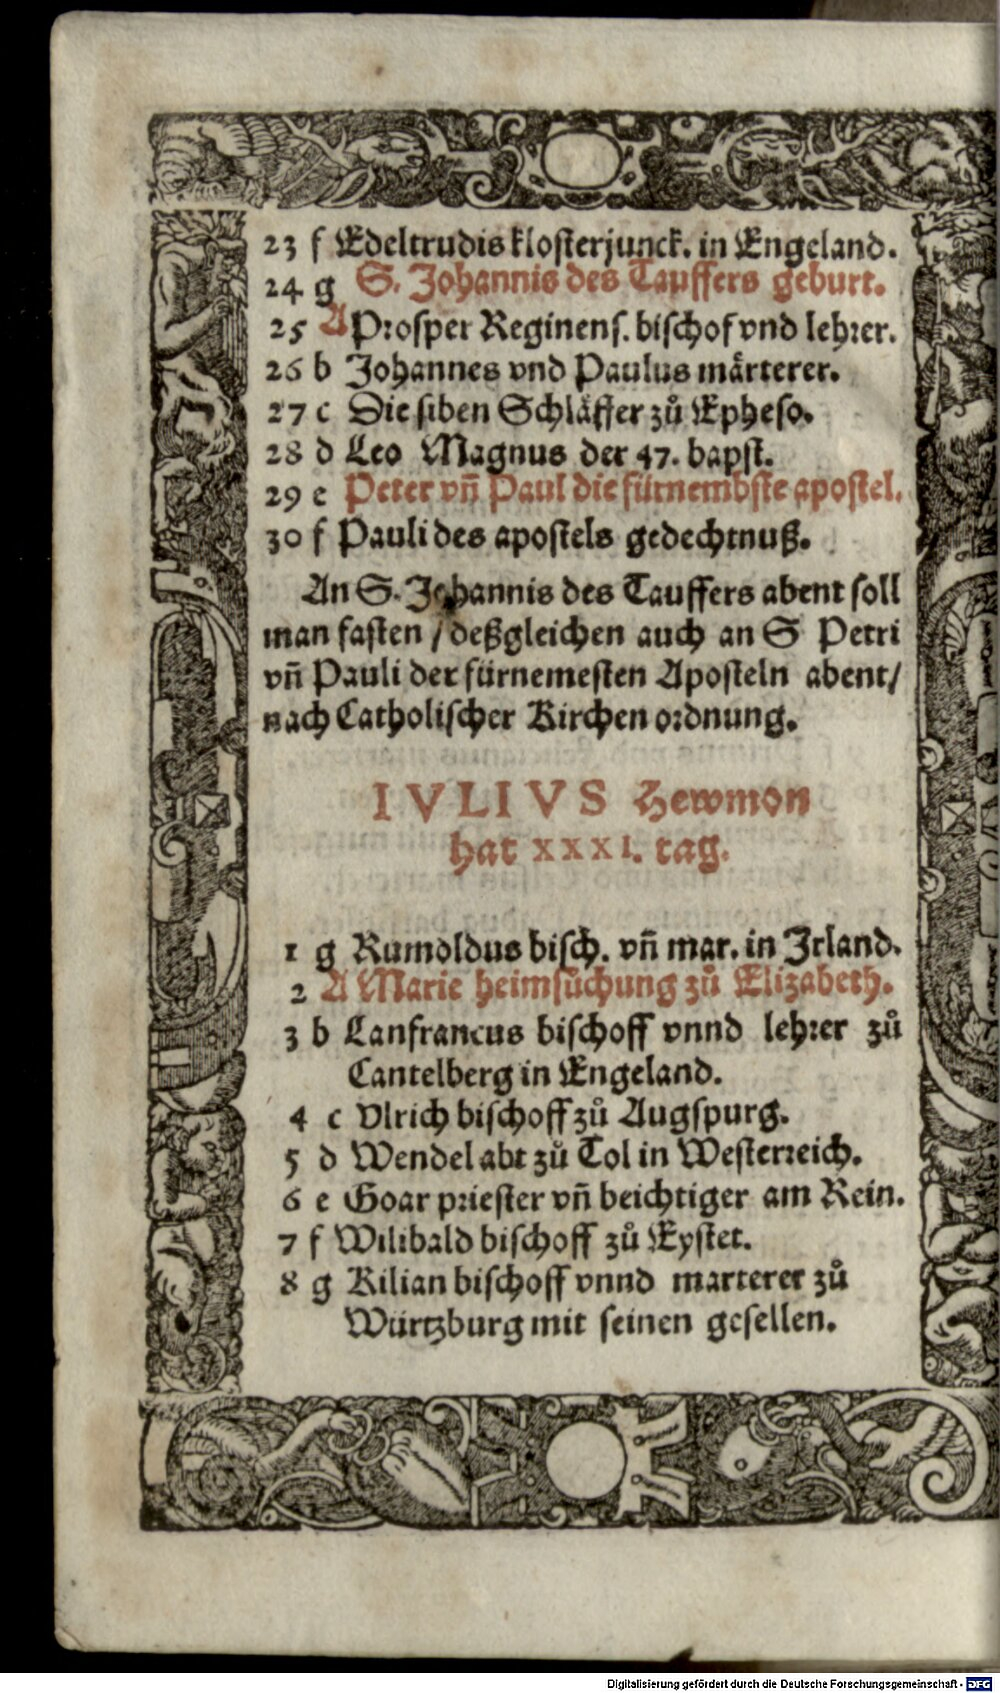 23 f Edeltrudis klosterjunck. in Engeland.
24 g S. Johannis des Tauffers geburt.
25 A Prosper Reginens. bischof vnd lehrer.
26 b Johannes vnd Paulus märterer.
27 c Die siben Schläffer zů Epheso.
28 d Leo Magnus der 47. bapst.
29 e Peter vñ Paul die fürnembste apostel.
30 f Pauli des apostels gedechtnuß.
An S. Johannis des Tauffers abent soll
man fasten / deßgleichen auch an S Petri
vñ Pauli der fürnemesten Aposteln abent/
nach Catholischer Kirchen ordnung.
IVLIVS Hewmon
hat XXXI. tag.
1 g Rumoldus bisch. vñ mar. in Irland.
2 A Marie heimsůchung zů Elizabeth.
3 b Lanfrancus bischoff vnnd lehrer zů
Cantelberg in Engeland.
4 c Vlrich bischoff zů Augspurg.
5 d Wendel abt zů Tol in Westerreich.
6 e Goar priester vñ beichtiger am Rein.
7 f Wilibald bischoff zů Eystet.
8 g Kilian bischoff vnnd marterer zů
Würtzburg mit seinen gesellen.
Digitalisierung gefördert durch die Deutsche Forschungsgemeinschaft - DFG